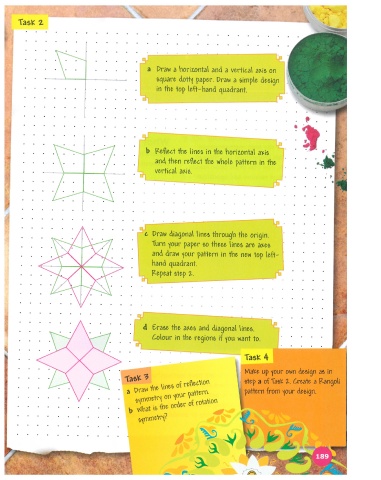 Task 2
a Draw a horizontal and a vertical axis on
square dotty paper. Draw a simple design
in the top left-hand quadrant.
b Reflect the lines in the horizontal axis
and then reflect the whole pattern in the
vertical axis.
c Draw diagonal lines through the origin.
Turn your paper so these lines are axes
and draw your pattern in the new top left-
hand quadrant.
Repeat step 2.
d Erase the axes and diagonal lines.
Colour in the regions if you want to.
Task 3
a Draw the lines of reflection
symmetry on your pattern.
b What is the order of rotation
symmetry?
Task 4
Make up your own design as in
step a of Task 2. Create a Rangoli
pattern from your design.
189